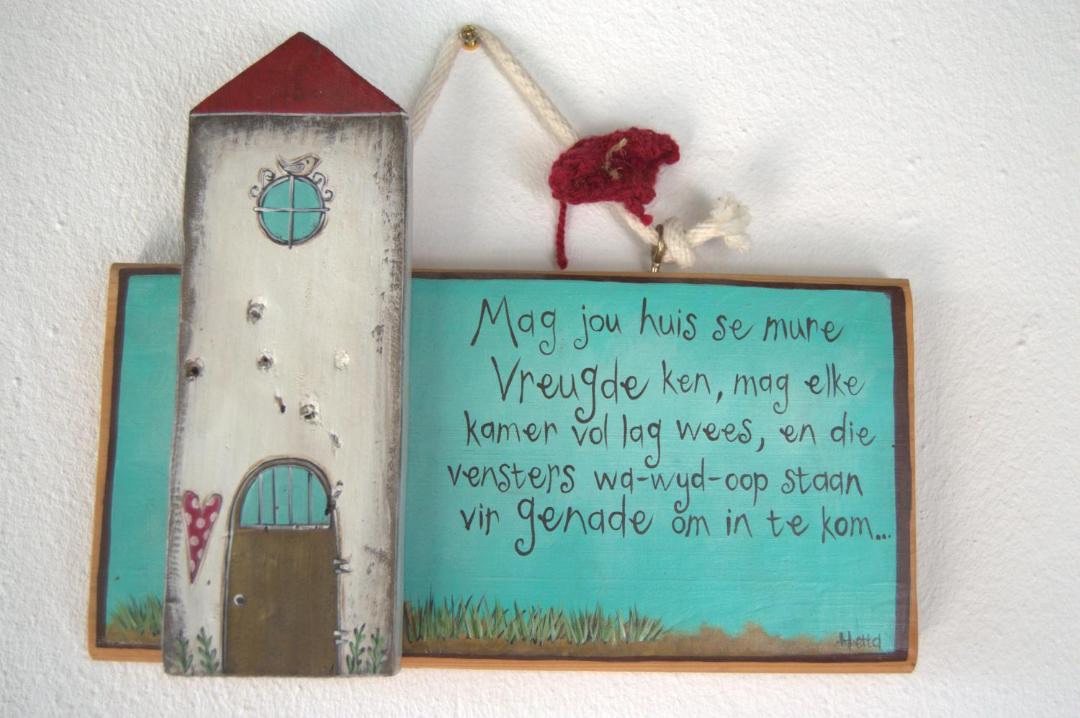 Mag jou huis se mure
Vreugde ken, mag elke
kamer vol lag wees, en die
vensters wa-wyd-oop staan
vir genade om in te kom...
Hetta